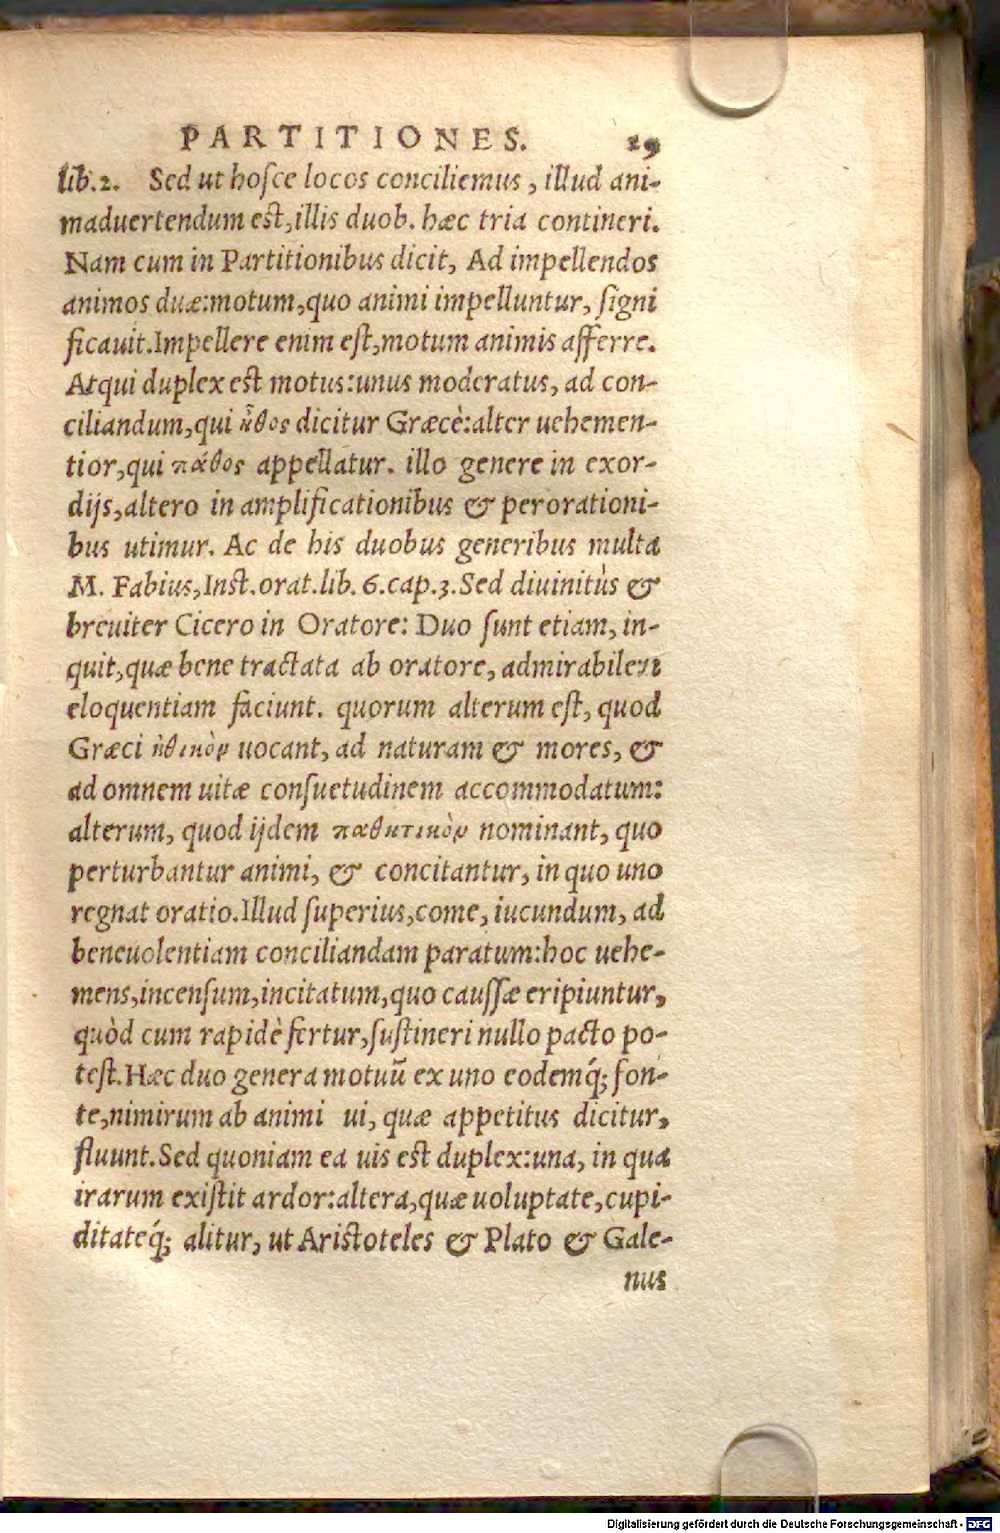 PARTITIONES. 29
lib.2. Sed ut hosce locos conciliemus, illud ani-
maduertendum est, illis duob. hæc tria contineri.
Nam cum in Partitionibus dicit, Ad impellendos
animos duæ: motum, quo animi impelluntur, signi
ficauit. Impellere enim est, motum animis afferre.
Atqui duplex est motus: unus moderatus, ad con-
ciliandum, qui ἦθος dicitur Græcè: alter uehemen-
tior, qui πάθος appellatur. illo genere in exor-
dijs, altero in amplificationibus & perorationi-
bus utimur. Ac de his duobus generibus multa
M. Fabius, Inst. orat. lib. 6. cap. 3. Sed diuinitùs &
breuiter Cicero in Oratore: Duo sunt etiam, in-
quit, quæ bene tractata ab oratore, admirabilem
eloquentiam faciunt. quorum alterum est, quod
Græci ἠθικὸν uocant, ad naturam & mores, &
ad omnem uitæ consuetudinem accommodatum:
alterum, quod ijdem παθητικὸν nominant, quo
perturbantur animi, & concitantur, in quo uno
regnat oratio. Illud superius, come, iucundum, ad
beneuolentiam conciliandam paratum: hoc uehe-
mens, incensum, incitatum, quo caussæ eripiuntur,
quòd cum rapidè fertur, sustineri nullo pacto po-
test. Hæc duo genera motuũ ex uno eodemq́; fon-
te, nimirum ab animi ui, quæ appetitus dicitur,
fluunt. Sed quoniam ea uis est duplex: una, in qua
irarum existit ardor: altera, quæ uoluptate, cupi-
ditateq́; alitur, ut Aristoteles & Plato & Gale-
nus
Digitalisierung gefördert durch die Deutsche Forschungsgemeinschaft - DFG